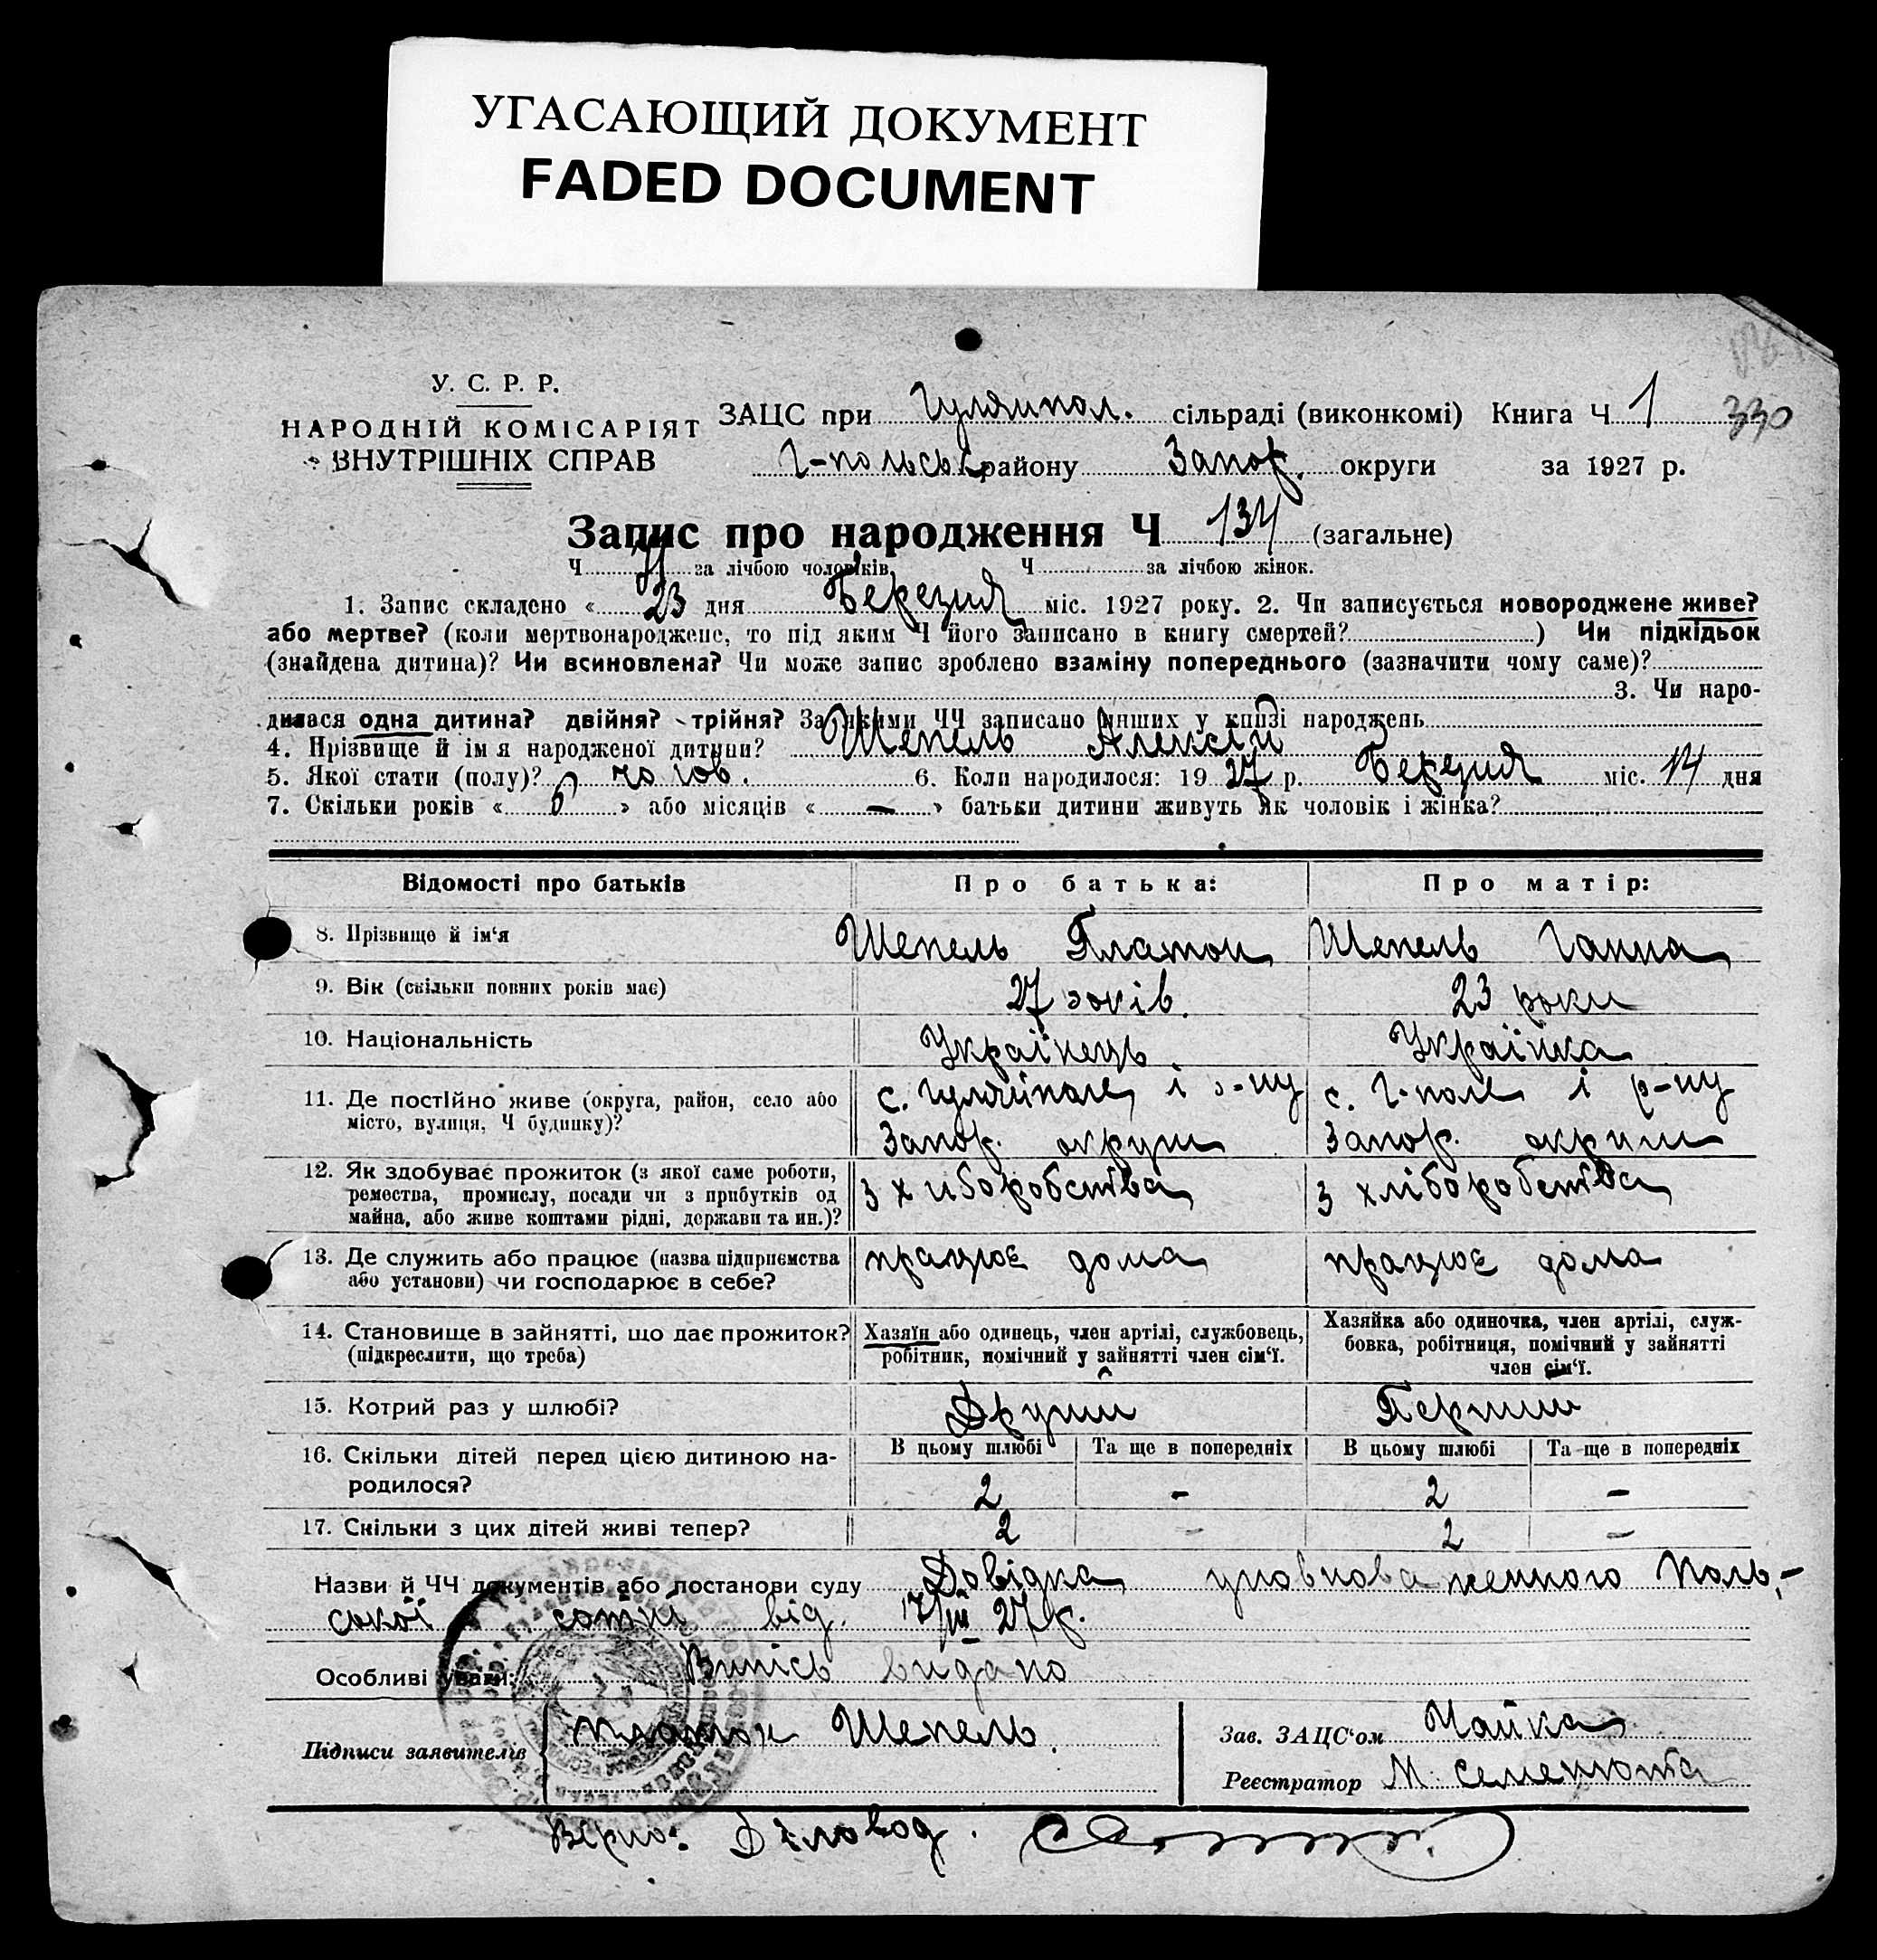 УГАСАЮЩИЙ ДОКУМЕНТ
FADED DOCUMENT
У. С. Р. Р.
НАРОДНІЙ КОМІСАРІЯТ
ВНУТРІШНІХ СПРАВ
ЗАЦС при Гуляйпол. сільраді (виконкомі) Книга Ч 1 330
Г-польськ району Запор. округи за 1927 р.
Запис про народження Ч 134 (загальне)
Ч за лічбою чоловіків Ч за лічбою жінок.
1. Запис складено « 23 дня Березня міс. 1927 року. 2. Чи записується новороджене живе?
або мертве? (коли мертвонароджене, то під яким Ч його записано в книгу смертей? ) Чи підкідьок
(знайдена дитина)? Чи всиновлена? Чи може запис зроблено взаміну попереднього (зазначити чому саме)?
3. Чи наро-
дилася одна дитина? двійня? трійня? За якими ЧЧ записано инших у книзі народжень
4. Прізвище й ім я народженої дитини? Шепель Алексій
5. Якої стати (полу)? чолов. 6. Коли народилося: 19 27 р. Березня міс. 14 дня
7. Скільки років « 6 » або місяців « — » батьки дитини живуть як чоловік і жінка?
Відомості про батьків Про батька: Про матір:
8. Прізвище й ім‘я Шепель Платон Шепель Ганна
9. Вік (скільки повних років має) 27 років. 23 роки
10. Національність Українець Українка
11. Де постійно живе (округа, район, село або с. Гуляйполе і р-ну с. Г-поле і р-ну
місто, вулиця, Ч будинку)? Запор. округи Запор. округи
12. Як здобуває прожиток (з якої саме роботи,
ремества, промислу, посади чи з прибутків од з хліборобства з хліборобства
майна, або живе коштами рідні, держави та ин.)?
13. Де служить або працює (назва підприємства працює дома працює дома
або установи) чи господарює в себе?
14. Становище в зайнятті, що дає прожиток? Хазяїн або одинець, член артілі, службовець, Хазяйка або одиночка, член артілі, служ-
(підкреслити, що треба) робітник, помічний у зайнятті член сім‘ї. бовка, робітниця, помічний у зайнятті
член сім‘ї.
15. Котрий раз у шлюбі? Другий Перший
16. Скільки дітей перед цією дитиною на- В цьому шлюбі Та ще в попередніх В цьому шлюбі Та ще в попередніх
родилося? 2 - 2 -
17. Скільки з цих дітей живі тепер? 2 - 2 -
Назви й ЧЧ документів або постанови суду Довідка уповноваженного Поль-
ської сотні від 17/III 27 р.
Особливі уваги: Випісь видано
Підписи заявителів Платон Шепель. Зав. ЗАЦС‘ом Чайка
Реєстратор М. Семенюта
Вірно: Діловод.